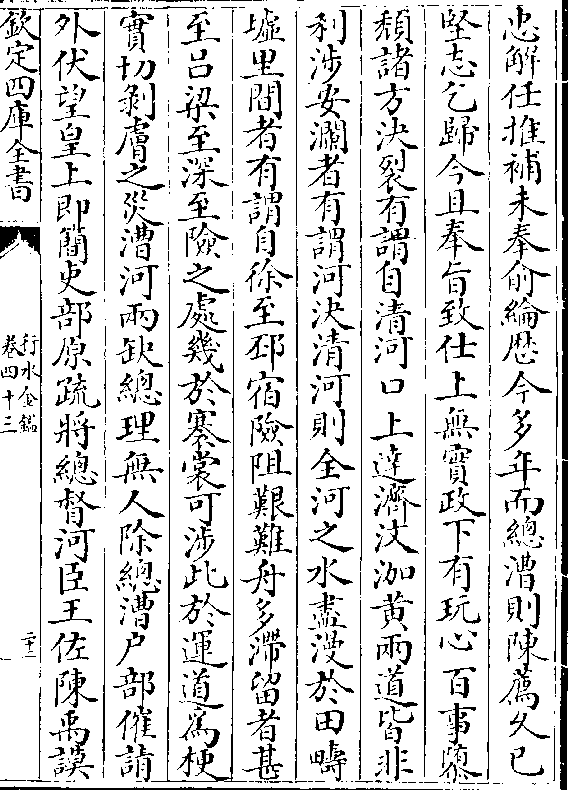 忠解任推補未奉俞綸歴今多年而總漕則陳薦久已
堅志乞歸今且奉㫖致仕上無實政下有玩心百事隳
頹諸方決裂有謂自清河口上達濟汶泇黄兩道皆非
利涉安瀾者有謂河決清河則全河之水盡漫於田疇
墟里間者有謂自徐至邳宿險阻艱難舟多滯留者甚
至吕梁至深至險之處幾於褰裳可涉此於運道為梗
實切剝膚之災漕河兩缺總理無人除總漕户部催請
外伏望皇上即簡吏部原疏將總督河臣王佐陳禹謨
欽定四庫全書
行水金鑑
卷四十三
二十二